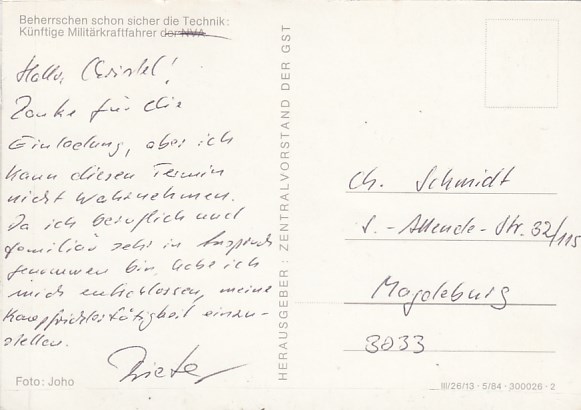 Beherrschen schon sicher die Technik:
Künftige Militärkraftfahrer der NVA
Hallo, Christel!
Danke für die
Einladung, aber ich
kann diesen Termin
nicht wahrnehmen.
Da ich beruflich und
familiär sehr in Anspruch
genommen bin, habe ich
mich entschlossen, meine
Kampfrichtertätigkeit einzu-
stellen.
Dieter
Foto: Joho
HERAUSGEBER: ZENTRALVORSTAND DER GST
Ch. Schmidt
S.-Allende-Str. 32/115
Magdeburg
3033
III/26/13 · 5/84 · 300026 · 2